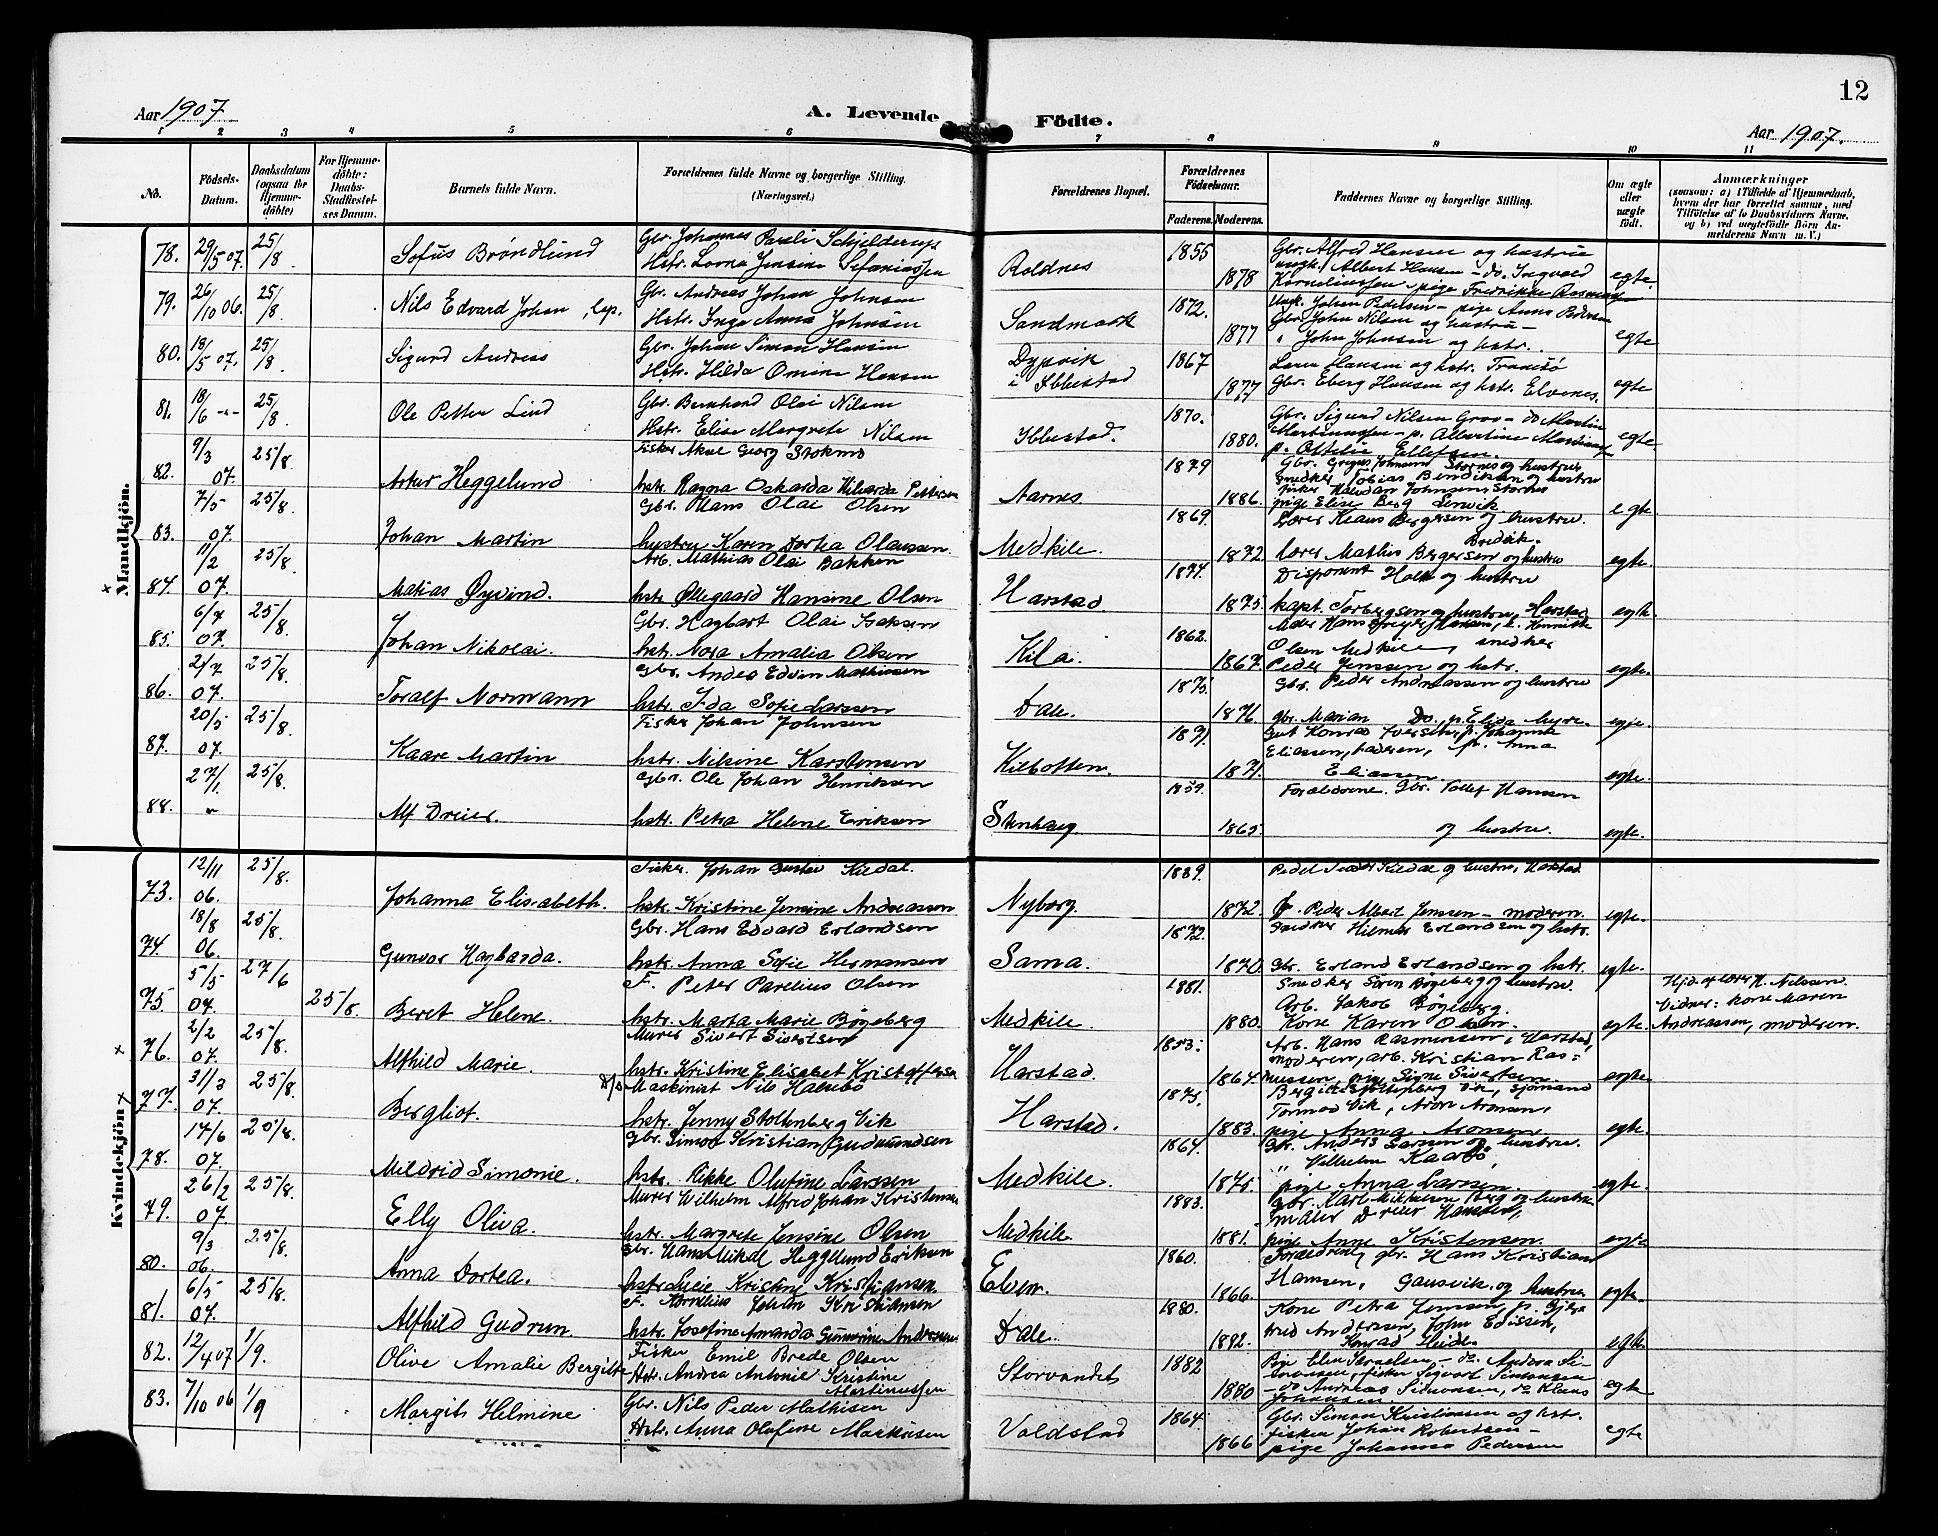 Aar 1907
A. Levende
Födte.
12
Aar 1907.
1 2 3 4 5 6 7 8 9 10 11
No.
Födsels-
Datum.
Daabsdatum
(ogsaa for
Hjemme-
döbte)
For Hjemme-
döbte:
Daabs-
Stadfæstel-
ses Datum.
Barnets fulde Navn.
Forældrenes fulde Navne og borgerlige Stilling.
(Næringsvei.)
Forældrenes Bopæl.
Forældrenes
Födselsaar.
Faderens. Moderens.
Faddernes Navne og borgerlige Stilling.
Om ægte
eller
uægte
födt.
Anmærkninger
(saasom: a) i Tilfælde af Hjemmedaab,
hvem der har forrettet samme, med
Tilföielse af to Daabsvidners Navne,
og b) ved uegtefödte Börn An-
melderens Navn m. V.)
Mandkjön.
78. 29/5 07. 25/8. Sofus Bröndlund
Gbr. Johannes Pareli Schjelderup
Hstr. Lovna Jensine Stefaniassen
Roldnes 1855 1878
Gbr. Alfred Hansen og hustru
ungk. Albert Hansen – do. Ingvald
Korneliussen – pige Fredrikke Rasmussen
egte.
79. 26/10 06. 25/8. Nils Edvard Johan, lap.
Gbr. Andreas Johan Johnsen
Hstr. Inga Anna Johnsen
Sandmark 1872. 1877
Ungk. Johan Pedersen – pige Anna Pedersen
Gbr. John Nilsen og hustru –
" John Johnsen og hstr.
egte
80. 18/5 07. 25/8. Sigurd Andreas
Gbr. Johan Simon Hansen
Hstr. Hilda Omine Hansen
Dypvik
i Ibbestad 1867 1877
Lars Hansen og hstr. Tranesö
Gbr. Eberg Hansen og hstr. Elvenes.
egte
81. 18/6 -"- 25/8. Ole Petter Lind
Gbr. Bernhard Olai Nilsen
Hstr. Elise Margrete Nilsen
Ibbestad. 1870. 1880.
Gbr. Sigurd Nilsen Grov – do Martin
Martinussen – p. Albertine Martinussen
p. Ottelie Ellefsen.
egte.
82. 9/3 07. 25/8. Artur Heggelund
Fisker Aksel Georg Stoknes
hstr. Ragna Oskarda Hilvarda Pettersen
Aarnes 1879 1886.
Gbr. Johnsen Stornes og hustru
snedker Tobias Bendiksen og hustru
fisker Halvdan Johnsen, Stornes
pige Elise Berg Lenvik.
egte.
83. 7/5 07. 25/8. Johan Martin
Gbr. Hans Olai Olsen
hustru Karen Dortea Olaussen.
Medkile. 1869. 1872
Lærer Klaus Bergersen og hustru.
Bredvik.
lærer Mathis Bergersen og hustru
egte.
84. 11/2 07. 25/8. Matias Øyvind.
Arb. Mathias Olai Bakken
hstr. Ollegaard Hansine Olsen
Harstad 1874. 1875.
Disponent Holm og hustru
kapt. Torbergsen og hustru, Harstad
egte.
85. 6/7 07. 25/8. Johan Nikolai.
Gbr. Hagbart Olai Isaksen
hstr. Nora Amalia Olsen
Kila. 1862. 1867.
Olsen Medkile, snedker
Peder Jenssen og hstr.
egte.
86. 2/7 07. 25/8. Toralf Normann
Gbr. Andes Edvin Mathissen
hstr. Ida Sofie Larssen
Dale. 1875 1876.
Gbr. Peder Andreassen og hustru
gbr. Marian Do. p. Elida
egte.
87. 20/5 07. 25/8. Kaare Martin
Fisker Johan Johnsen
hstr. Nilsine Karstensen
Kilbotten. 1871. 1871.
Gut Konrad Iversen, p. Johanna
Eliassen, faderen, p. Anna
Eliassen.
egte.
88. 27/1. " 25/8. Alf Dreier.
Gbr. Ole Johan Henriksen
hstr. Petra Helene Eriksen
Stenhaug 1859. 1865.
Forældrene. Gbr. Tollef Hansen
og hustru.
egte.
Kvindekjön
73. 12/11 06. 25/8. Johanna Elisabeth.
Fisker. Johan Gustav Kildal.
hstr. Kristine Jensine Andreassen
Nyborg. 1839 1872.
Kildal og hustru, Harstad
p. Peder Albert Jenssen – moderen.
egte.
74. 18/8 06. 25/8. Gunvor Hagbarda.
Gbr. Hans Edvard Erlandsen
hstr. Anna Sofie Hermansen
Sama. 1872. 1870.
Snedker Hilmar Erlandsen og hstr.
Gbr. Erland Erlandsen og hstr.
egte.
75. 5/5 07. 27/6 25/8. Beret Helene.
F. Peter Parelius Olsen
hstr. Marta Marie Bøgeberg
Medkile. 1881. 1880.
Snedker Sören Bøgeberg og hustru.
Arb. Jakob Bøgeberg.
Kone Karen Olsen.
egte.
Hjd. af lærer N. Nilssen.
Vidner: kone Maren
Andreassen, moderen.
76. 2/2 07. 25/8. Alfhild Marie.
Murer Sivert Sivertsen
hstr. Kristine Elisabet Kristoffersen
Harstad. 1853. 1864.
Arb. Hans Rasmussen, Harstad,
moderen, arb. Kristian Ras-
mussen, pige Signe Sivertsen
egte.
77. 31/3 07. 25/8. Bergliot.
D/s Maskinist Nils Halsebö
hstr. Jenny Stoltenberg Vik
Harstad. 1875. 1883.
Bergitte Stoltenberg Vik, sjömand
Tormod Vik, Aron Aronsen,
pige Anna Aronsen
egte.
78. 14/6 07. 25/8. Mildrid Simonie.
Gbr. Simon Kristian Gudmundsen
hstr. Rikke Olufine Larssen
Medkile. 1864. 1875.
Gbr. Anders Larssen og hustru.
" Vilhelm Kaarbö,
pige Anna Larssen.
egte.
79. 26/2 07. 25/8. Elly Oliva.
Murer Wilhelm Alfred Johan Kristensen
hstr. Margrete Jensine Olsen
Medkile. 1883. 1881.
Gbr. Karl Mikkelsen Berg og hustru
maler Dreier Hansen,
pige Anne Kristensen.
egte
80. 9/3 06. 25/8. Anna Dortea.
Gbr. Hans Mikal Heggelund Eriksen
hstr. Lucie Kristine Kristiansen
Elven. 1860. 1866.
Forældrene, gbr. Hans Kristian
Hansen, Gausvik, og hustru
egte.
81. 6/5 07. 25/8. Alfhild Gudrun.
F. Kornelius Johan Kristiansen
hstr. Josefine Amanda Gunnerine Andersen
Dale. 1880. 1882.
Kone Petra Jensen, p. Gjer-
trud Andersen, John Edissen,
Konrad Heide.
egte.
82. 12/4 07 1/9. Olive Amalie Bergitte
Fisker Emil Brede Olsen
Hstr. Andrea Antonie Kristine
Martinussen
Storvandet 1882 1880
Pige Elen Israelsen – do. Andora Si-
monsen, fisker Sigvart Simonsen
– do Andreas Simonsen, do Klaus
Johansen
egte
83. 7/10 06 1/9 Margit Helmine
Gbr. Nils Peder Mathisen
Hstr. Anna Olufine Markusen
Voldstad 1864. 1866
Gbr. Simon Kristiansen og hst.
fisker Johan Robertsen –
pige Johanna Pedersen
egte